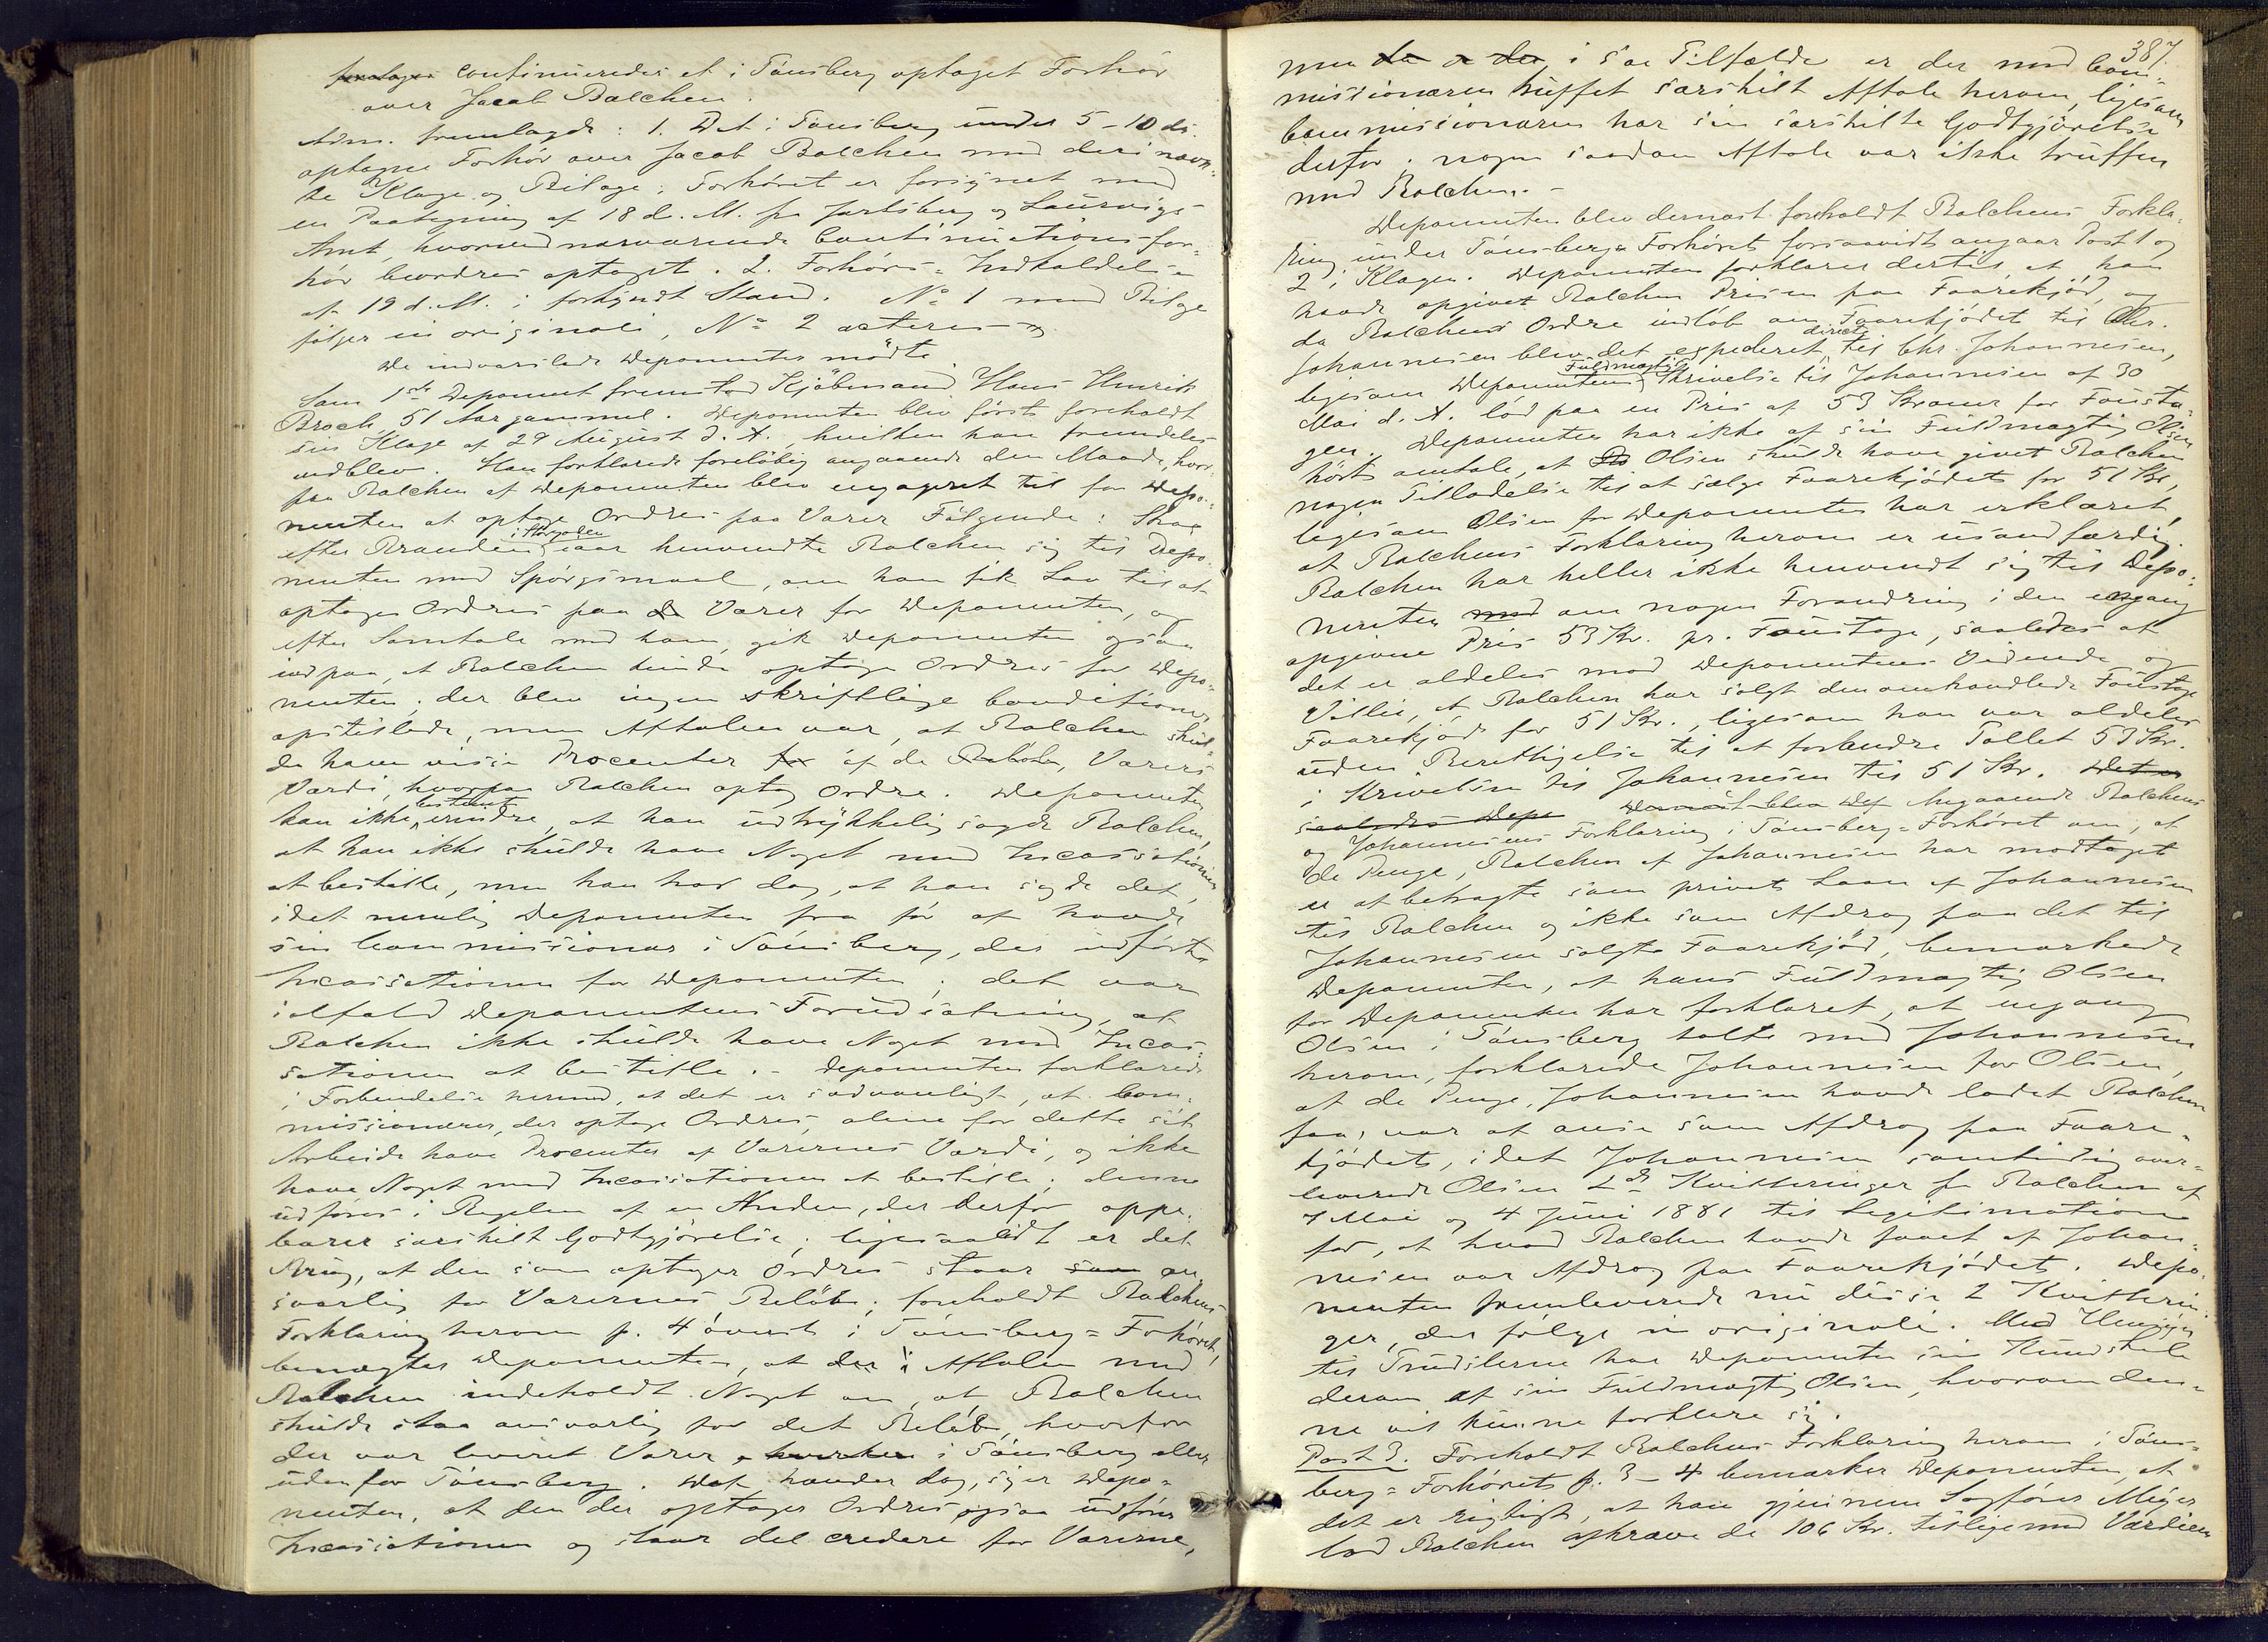 continueredes et i Tønsberg optaget Forhør
over Jacob Balchen.
Adm. fremlagde: 1. Det i Tønsberg under 5-10 ds.
optagne Forhør over Jacob Balchen med deri nævn-
te Klage og Bilage; Forhøret er forsynet med
en Paategning af 18 d. M. fra Jarlsberg og Laurvigs
Amt, hvorved nærværende Continuationsfor-
hør beordres optaget. 2. Forhørs-Indkaldelse
af 19 d. M. i forkyndt Stand. No 1 med Bilage
følger in originali, No 2 acteres
De indvarslede Deponenter mødte
Som 1ste Deponent fremstod Kjøbmand Hans Henrik
Broch, 51 Aar gammel. Deponenten blev først foreholdt
sin Klage af 29 August d. A., hvilken han fremdeles
vedblev. Han forklarede foreløbig angaaende den Maade, hvor-
paa Balchen af Deponenten blev engageret til for Depo-
nenten at optage Ordres paa Varer Følgende: Strax
efter Branden iaar henvendte Balchen sig til Depo-
nenten med Spørgsmaal, om han fik Lov til at
optage Ordres paa Varer for Deponenten, og
efter Samtale med ham, gik Deponenten ogsaa
ind paa, at Balchen kunde optage Ordres for Depo-
nenten; der blev ingen skriftlige Conditioner
opstillede, men Aftalen var, at Balchen skul-
de have visse Procenter af de Varers
Værdi, hvorpaa Balchen optog Ordre. Deponenten
kan ikke bestemt erindre, at han udtrykkelig sagde Balchen,
at han ikke skulde have Noget med Incassationen
at bestille, men han tror dog, at han sagde det,
idet nemlig Deponenten fra før af havde
sin Commissionær i Tønsberg, der udførte
Incassationen for Deponenten; det var
ialfald Deponentens Forudsætning, at
Balchen ikke skulde have Noget med Incas-
sationen at bestille. - Deponenten forklarede
i Forbindelse hermed, at det er sædvanligt, at Com-
missionærer, der optage Ordres, alene for dette sit
Arbeide have Procenter af Varernes Værdi, og ikke
have Noget med Incassationen at bestille; denne
udføres i Regelen af en Anden, der derfor oppe-
bærer særskilt Godtgjørelse; ligesaalidt er det
Brug, at den som optager Ordres staar an-
svarlig for Varernes Beløb; foreholdt Balchens
Forklaring herom p. 4 øverst i Tønsberg-Forhøret,
benægter Deponenten, at Aftalen med
Balchen indeholdt Noget om, at Balchen
skulde staa ansvarlig for det Beløb, hvorfor
der var leveret Varer i Tønsberg eller
udenfor Tønsberg. Det hænder dog, siger Depo-
nenten, at den der optager Ordres ogsaa udfører
Incassationen og staar del credere for Varerne,
387.
men i saa Tilfælde er der med Com-
missionæren truffet særskilt Aftale herom, ligesom
Commissionæren har sin særskilte Godtgjørelse
derfor; nogen saadan Aftale var ikke truffen
med Balchen. -
Deponenten blev dernæst foreholdt Balchens Forkla-
ring under Tønsbergs Forhøret forsaavidt angaar Post 1 og
2 i Klagen. Deponenten forklarer dertil, at han
havde opgivet Balchen Prisen paa Faarekjød, og
da Balchens Ordre indløb om Faarekjødet til Chr.
Johannesen blev det expederet directe til Chr. Johannesen,
ligesom Deponentens Fuldmægtigs Skrivelse til Johannesen af 30
Mai d. A. lød paa en Pris af 53 Kroner for Fousta-
gen. Deponenten har ikke af sin Fuldmægtig Olsen
hørt omtale, at Olsen skulde have givet Balchen
nogen Tilladelse til at sælge Faarekjødet for 51 Kr,
ligesom Olsen for Deponenten har erklæret,
at Balchens Forklaring herom er usandfærdig.
Balchen har heller ikke henvendt sig til Depo-
nenten om nogen Forandring i den engang
opgivne Pris 53 Kr. pr. Foustage, saaledes at
det er aldeles mod Deponentens Vidende og
Villie, at Balchen har solgt den omhandlede Foustage
Faarekjød for 51 Kr., ligesom han var aldeles
uden Berettigelse til at forandre Tallet 53 Kr.
i Skrivelsen til Johannesen til 51 Kr.
Angaaende Balchens
og Johannesens Forklaring i Tønsberg-Forhøret om, at
de Penge, Balchen af Johannesen har modtaget
er at betragte som privat Laan af Johannesen
til Balchen og ikke som Afdrag paa det til
Johannesen solgte Faarekjød, bemærkede
Deponenten, at hans Fuldmægtig Olsen
for Deponenten har forklaret, at engang
Olsen i Tønsberg talte med Johannesen
herom, forklarede Johannesen for Olsen,
at de Penge, Johannesen havde ladet Balchen
faa, var at anse som Afdrag paa Faare-
kjødet, idet Johannesen samtidig over-
leverede Olsen 2de Kvitteringer fra Balchen af
7 Mai og 4 Juni 1881 til Legitimation
for, at hvad Balchen havde faaet af Johan-
nesen var Afdrag paa Faarekjødet. Depo-
nenten fremleverede nu disse 2 Kvitterin-
ger, der følge in originali. Med Hensyn
til Trudslerne har Deponenten sin Kundskab
derom af sin Fuldmægtig Olsen, hvorom den-
ne vil kunne forklare sig.
Post 3. Foreholdt Balchens Forklaring herom i Tøns-
berg-Forhørets p. 3-4 bemærker Deponenten, at
det er rigtigt, at han gjennem Sagfører Meyer
lod Balchen afkræve de 106 Kr. tilligemed Værdien